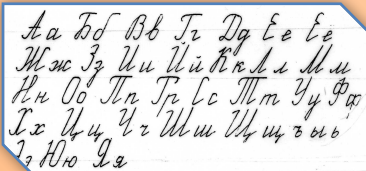 Аа Бб Вв Гг Дд Ее Ее
Жж Зз Ии Йй Кк Лл Мм
Нн Оо Пп Гр Сс Тт Уу Фф
Хх Цц Чч Шш Щщ ъ ы ь
Ээ Юю Яя